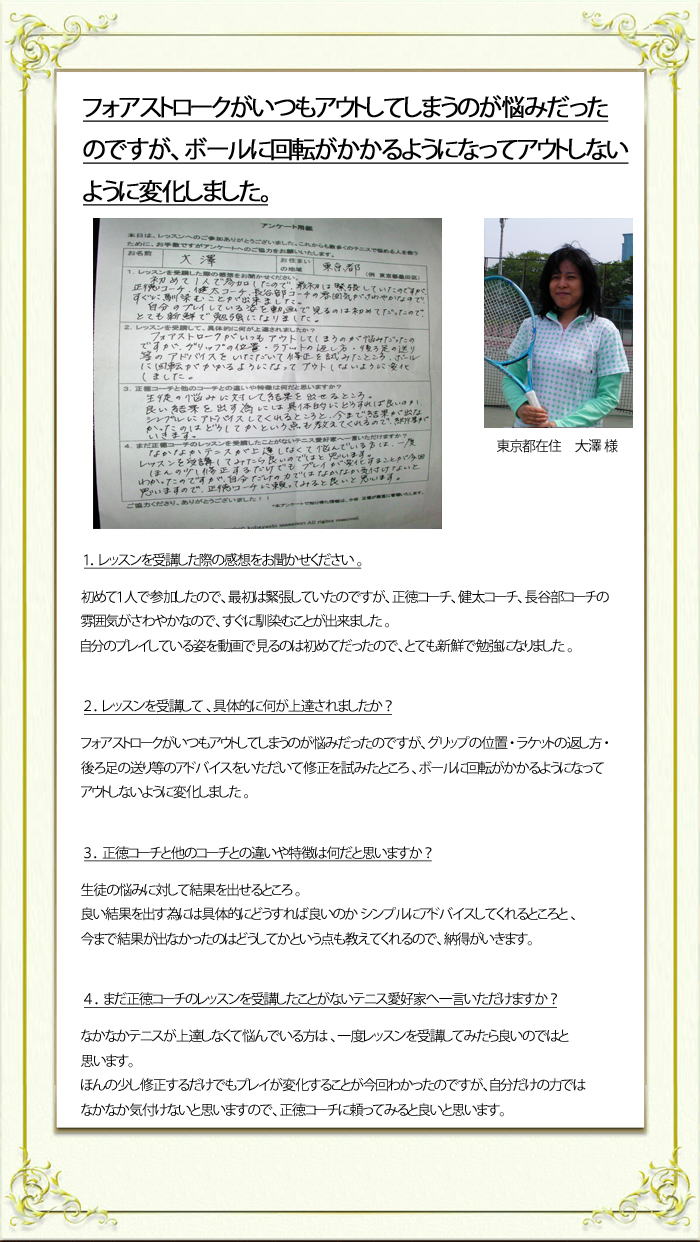 フォアストロークがいつもアウトしてしまうのが悩みだった
のですが、ボールに回転がかかるようになってアウトしない
ように変化しました。
アンケート用紙
本日は、レッスンへのご参加ありがとうございました。これからも数多くのテニスで悩める人を救う
ために、お手数ですがアンケートへのご協力をお願いいたします。
お名前 大澤 お住まいの地域 東京都 (例 東京都墨田区)
1. レッスンを受講した際の感想をお聞かせください。
初めて1人で参加したので、最初は緊張していたのですが、
正徳コーチ、健太コーチ、長谷部コーチの雰囲気がさわやかなので
すぐに馴染むことが出来ました。
自分のプレイしている姿を動画で見るのは初めてだったので、
とても新鮮で勉強になりました。
2. レッスンを受講して、具体的に何が上達されましたか?
フォアストロークがいつもアウトしてしまうのが悩みだったの
ですが、グリップの位置・ラケットの返し方・後ろ足の送り
等のアドバイスをいただいて修正を試みたところ、ボール
に回転がかかるようになってアウトしないように変化
しました。
3. 正徳コーチと他のコーチとの違いや特徴は何だと思いますか?
生徒の悩みに対して結果を出せるところ。
良い結果を出す為には具体的にどうすれば良いのか、
シンプルにアドバイスしてくれるところと、今まで結果が出な
かったのはどうしてかという点も教えてくれるので、納得が
いきます。
4. まだ正徳コーチのレッスンを受講したことがないテニス愛好家へ一言いただけますか?
なかなかテニスが上達しなくて悩んでいる方は、一度
レッスンを受講してみたら良いのではと思います。
ほんの少し修正するだけでもプレイが変化することが今回
わかったのですが、自分だけの力ではなかなか気付けないと
思いますので、正徳コーチに頼ってみると良いと思います。
ご協力くださり、ありがとうございました!!
東京都在住 大澤 様
1. レッスンを受講した際の感想をお聞かせください。
初めて1人で参加したので、最初は緊張していたのですが、正徳コーチ、健太コーチ、長谷部コーチの
雰囲気がさわやかなので、すぐに馴染むことが出来ました。
自分のプレイしている姿を動画で見るのは初めてだったので、とても新鮮で勉強になりました。
2. レッスンを受講して、具体的に何が上達されましたか?
フォアストロークがいつもアウトしてしまうのが悩みだったのですが、グリップの位置・ラケットの返し方・
後ろ足の送り等のアドバイスをいただいて修正を試みたところ、ボールに回転がかかるようになって
アウトしないように変化しました。
3. 正徳コーチと他のコーチとの違いや特徴は何だと思いますか?
生徒の悩みに対して結果を出せるところ。
良い結果を出す為には具体的にどうすれば良いのかシンプルにアドバイスしてくれるところと、
今まで結果が出なかったのはどうしてかという点も教えてくれるので、納得がいきます。
4. まだ正徳コーチのレッスンを受講したことがないテニス愛好家へ一言いただけますか?
なかなかテニスが上達しなくて悩んでいる方は、一度レッスンを受講してみたら良いのではと
思います。
ほんの少し修正するだけでもプレイが変化することが今回わかったのですが、自分だけの力では
なかなか気付けないと思いますので、正徳コーチに頼ってみると良いと思います。